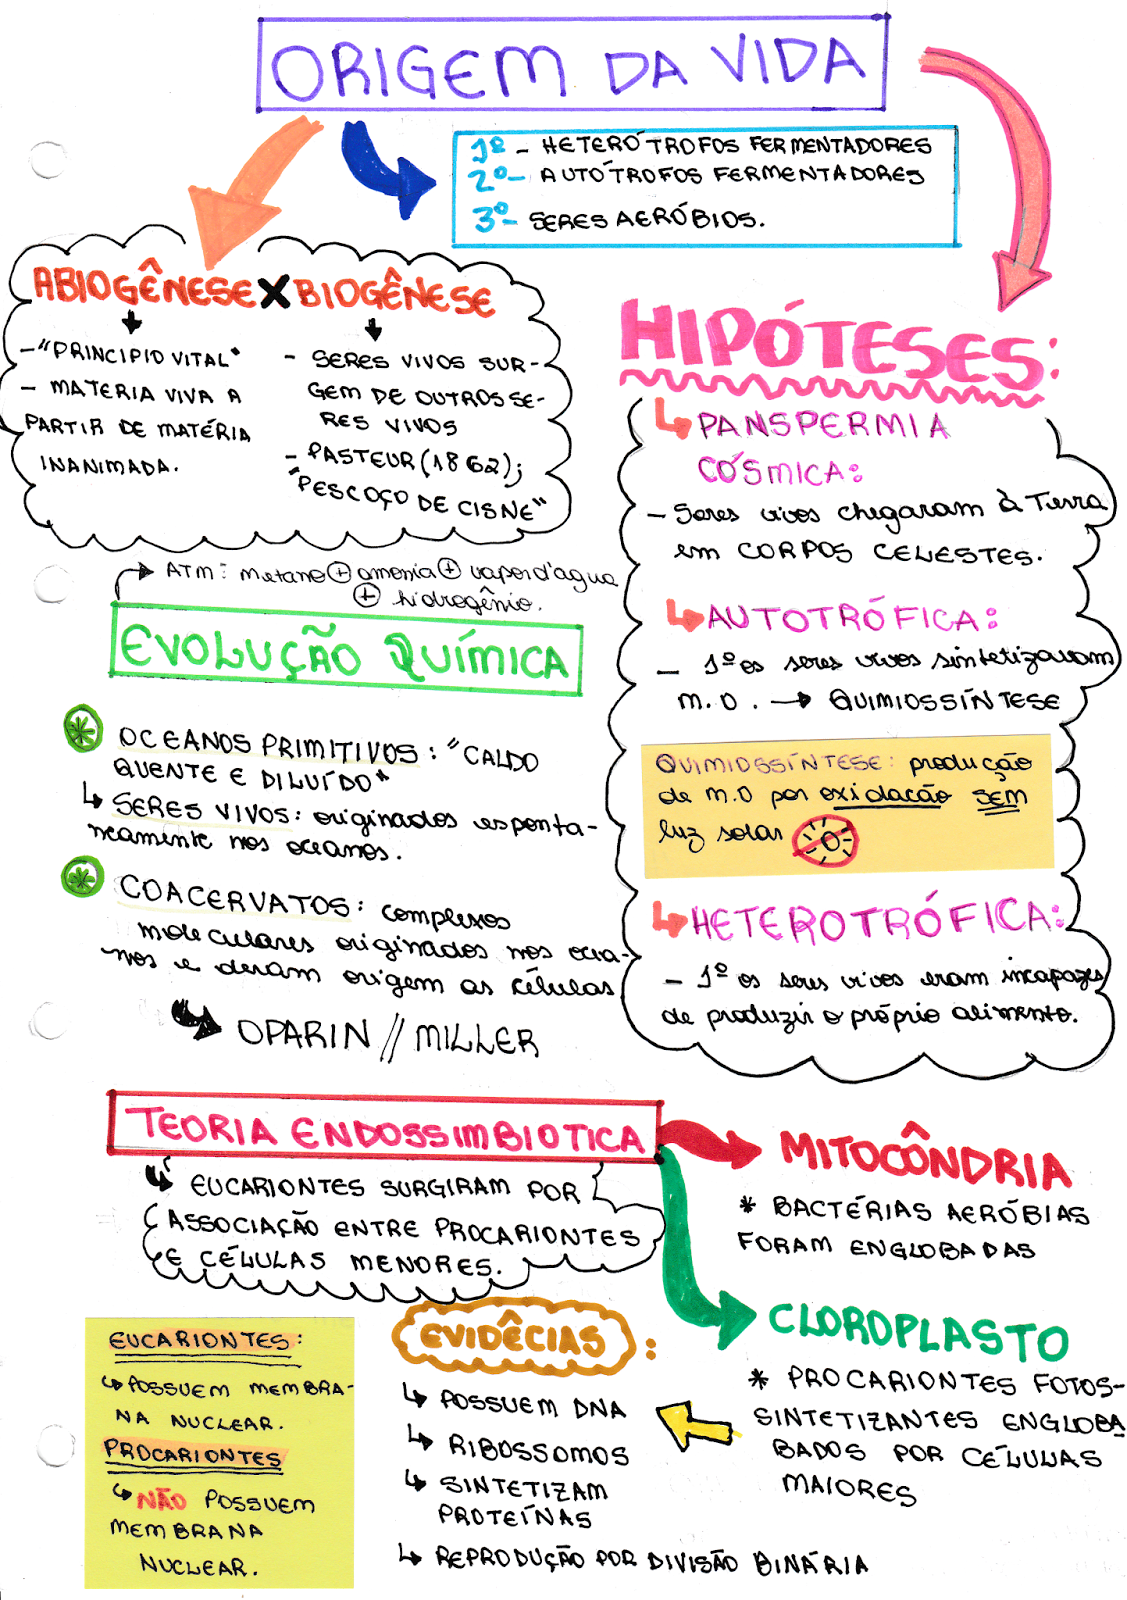 ORIGEM DA VIDA
1º - HETERÓTROFOS FERMENTADORES
2º- AUTÓTROFOS FERMENTADORES
3º- SERES AERÓBIOS.
ABIOGÊNESE X BIOGÊNESE
-"PRINCIPIO VITAL"
- MATERIA VIVA A
PARTIR DE MATÉRIA
INANIMADA.
- SERES VIVOS SUR-
GEM DE OUTROS SE-
RES VIVOS
- PASTEUR (1862);
"PESCOÇO DE CISNE"
HIPÓTESES:
PANSPERMIA
CÓSMICA:
- Seres vivos chegaram à Terra
em CORPOS CELESTES.
AUTOTRÓFICA:
- 1º os seres vivos sintetizavam
M.O. → QUIMIOSSÍNTESE
QUIMIOSSÍNTESE: produção
de M.O por oxidação SEM
luz solar
HETEROTRÓFICA:
- 1º os seres vivos eram incapazes
de produzir o próprio alimento.
ATM: metano + amonia + vapor d'agua
+ hidrogênio.
EVOLUÇÃO QUÍMICA
OCEANOS PRIMITIVOS: "CALDO
QUENTE E DILUÍDO"
SERES VIVOS: originados esponta-
neamente nos oceanos.
COACERVATOS: complexos
moleculares originados nos ocea-
nos e deram origem as células
OPARIN // MILLER
TEORIA ENDOSSIMBIOTICA
EUCARIONTES SURGIRAM POR
ASSOCIAÇÃO ENTRE PROCARIONTES
E CÉLULAS MENORES.
MITOCÔNDRIA
* BACTÉRIAS AERÓBIAS
FORAM ENGLOBADAS
CLOROPLASTO
* PROCARIONTES FOTOS-
SINTETIZANTES ENGLOBA
BADOS POR CÉLULAS
MAIORES
EVIDÊCIAS:
POSSUEM DNA
RIBOSSOMOS
SINTETIZAM
PROTEÍNAS
REPRODUÇÃO POR DIVISÃO BINÁRIA
EUCARIONTES:
POSSUEM MEMBRA-
NA NUCLEAR.
PROCARIONTES
NÃO POSSUEM
MEMBRANA
NUCLEAR.